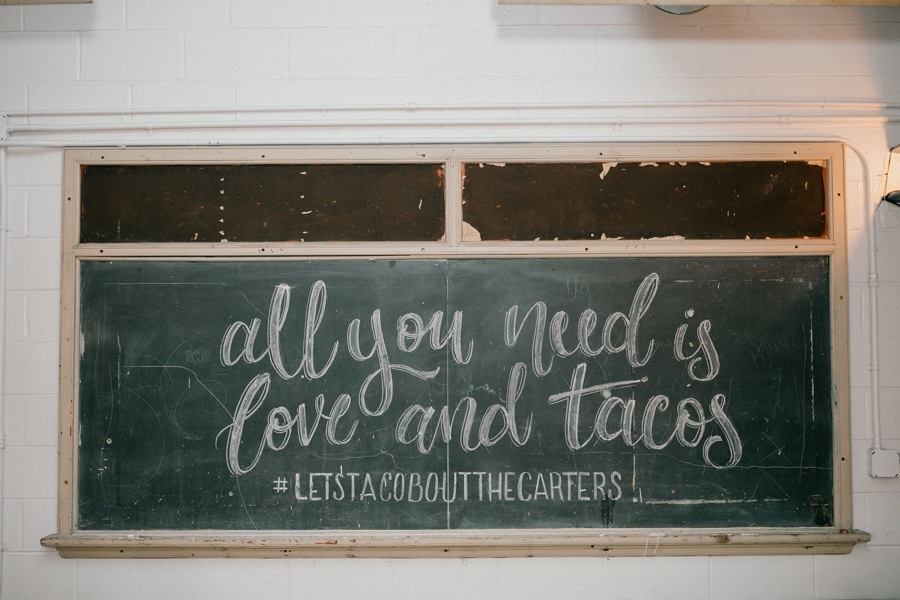 all you need is
love and tacos
#LET'STACOBOUTTHECARTERS